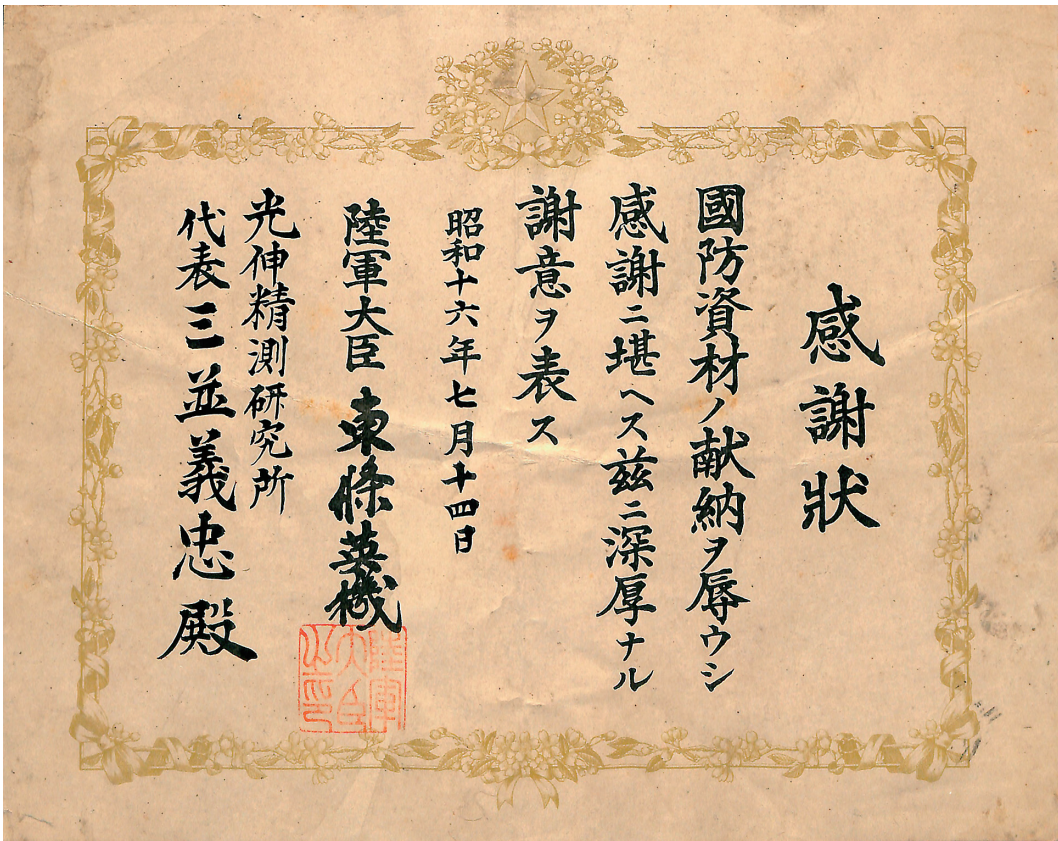 感謝狀
國防資材ノ献納ヲ辱ウシ
感謝ニ堪ヘス玆ニ深厚ナル
謝意ヲ表ス
昭和十六年七月十四日
陸軍大臣 東條英機
陸軍大臣之印
光伸精測研究所
代表 三並義忠殿